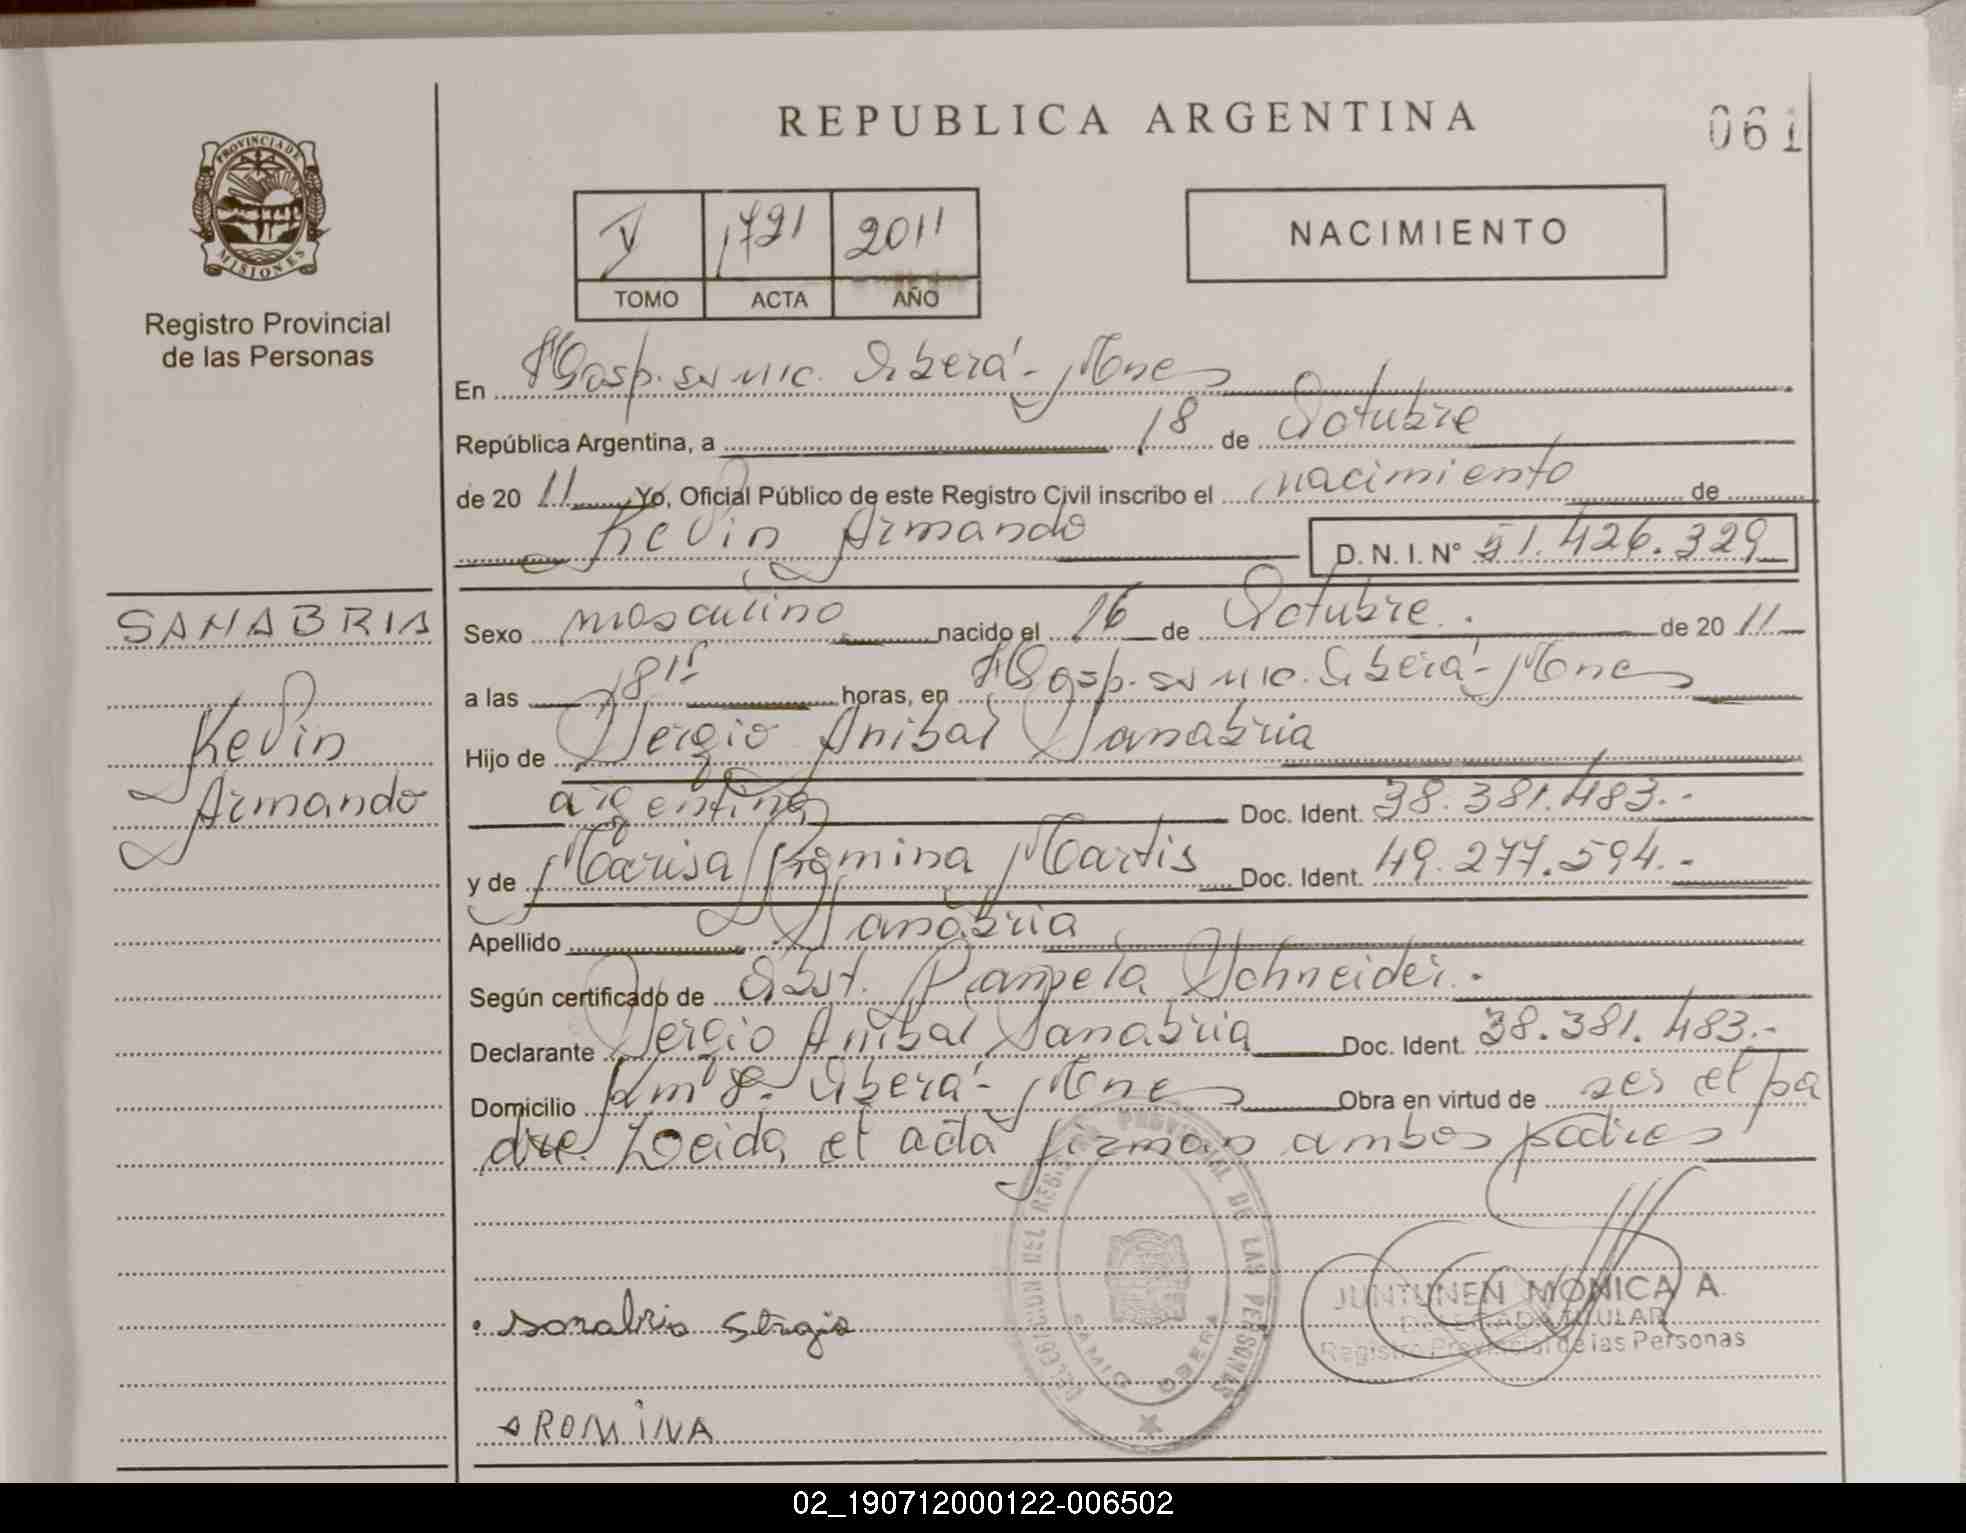 REPUBLICA ARGENTINA
061
PROVINCIA DE
MISIONES
Registro Provincial
de las Personas
V 1721 2011
TOMO ACTA AÑO
NACIMIENTO
En Hosp. Samic. Oberá - Mnes
República Argentina, a 18 de Octubre
de 20 11 Yo, Oficial Público de este Registro Civil inscribo el nacimiento de
Kevin Armando
D. N. I. N° 51.426.329
SANABRIA
Kevin
Armando
Sexo masculino nacido el 16 de Octubre. de 20 11
a las 18 15 horas, en Hosp. Samic. Oberá - Mnes
Hijo de Sergio Anibal Sanabria
argentino Doc. Ident. 38.381.483.-
y de Marisa Romina Martis Doc. Ident. 49.277.594.-
Apellido Sanabria
Según certificado de Obst. Pamela Schneider.
Declarante Sergio Anibal Sanabria Doc. Ident. 38.381.483.-
Domicilio Km 8. Oberá - Mnes Obra en virtud de ser el pa
dre. Leida el acta firman ambos padres
DELEGACION DEL REGISTRO PROVINCIAL DE LAS PERSONAS
SAMIC OBERA
JUNTUNEN MONICA A.
DELEGADA TITULAR
Registro Provincial de las Personas
sanabria Sergio
ROMINA
02_190712000122-006502